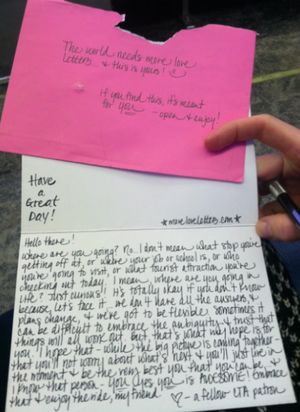 The world needs more love
letters & this is yours! :)
If you find this, it's meant
for you - open & enjoy!
Have
a
Great
Day!
*moreloveletters.com*
Hello there!
Where are you going? No. I don't mean what stop you're
getting off at, or where your job or school is, or who
you're going to visit, or what tourist attraction you're
checking out today. I mean where are you going in
life? Just curious! It's totally okay if you don't know
because let's face it, we don't have all the answers, &
plans change, & we've got to be flexible. Sometimes it
can be difficult to embrace the ambiguity & trust that
things will all work out, but that's what we hope is for
you. I hope that while the big picture is coming together
that you'll not worry about what's next & you'll just live in
the moment & be the very best you that you can be. 'Cause
I know that person - you (yes you) is AWESOME! Embrace
that & enjoy the ride, my friend. ♡ - a fellow CTA patron